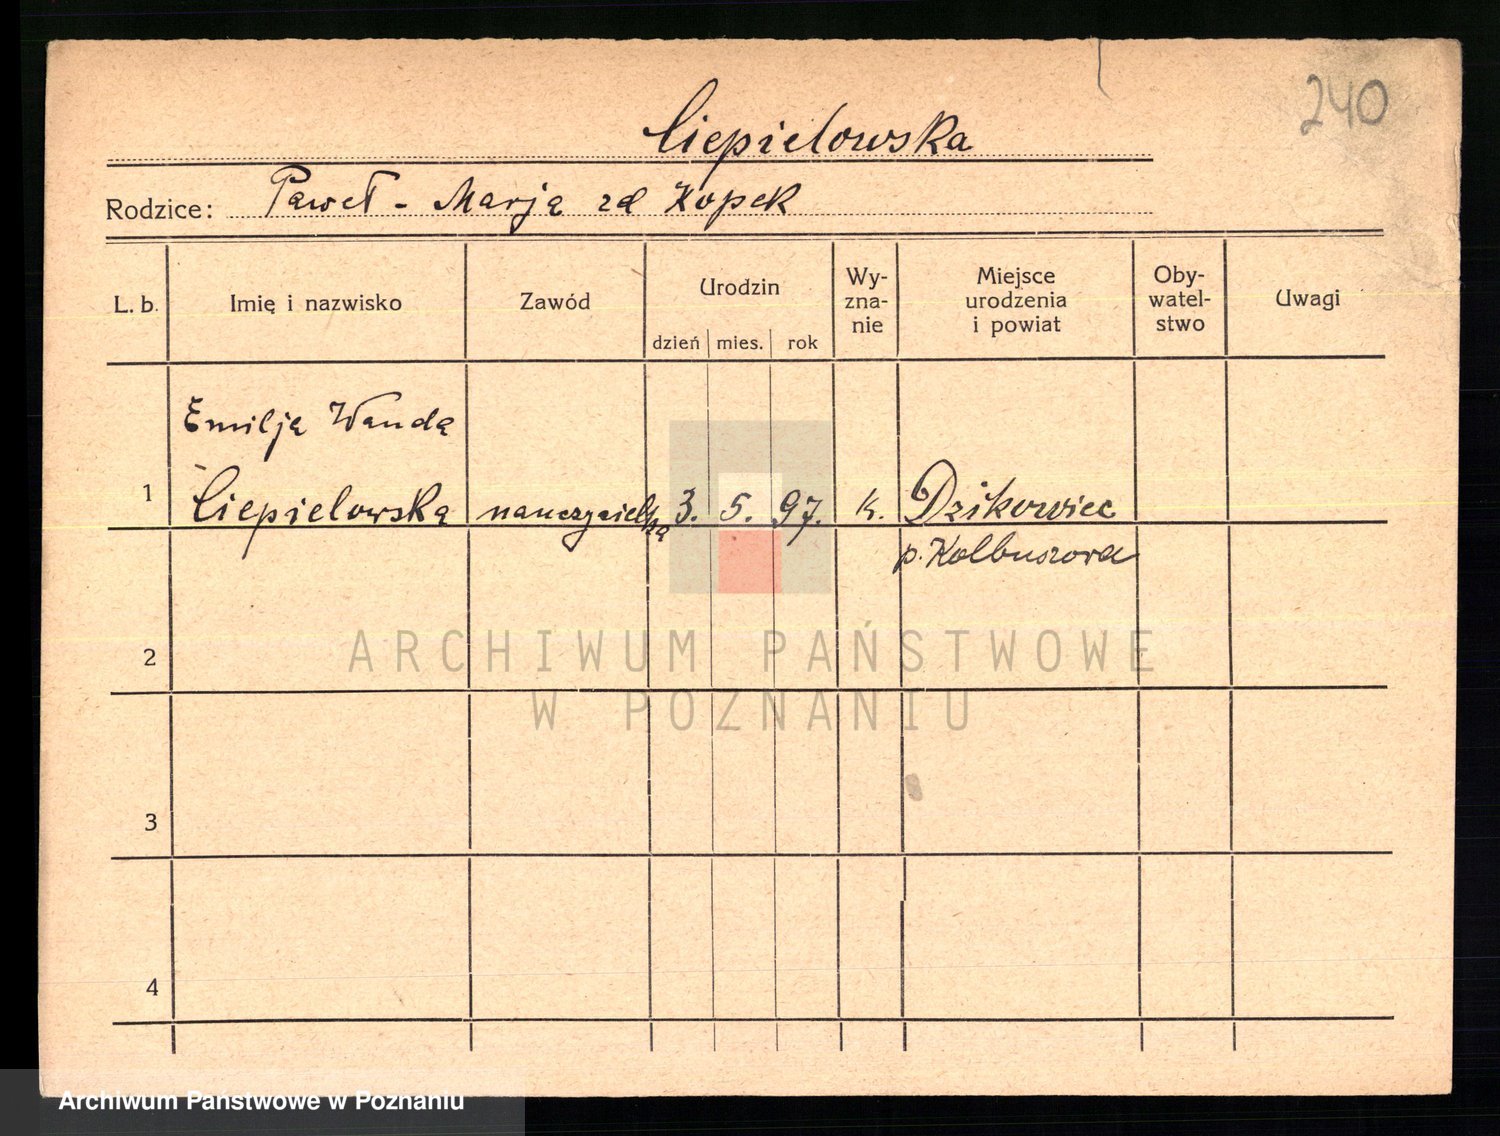 240
Ciepielowska
Rodzice: Paweł - Marja zd Kopek
L. b. Imię i nazwisko Zawód Urodzin dzień mies. rok Wy-zna-nie Miejsce urodzenia i powiat Oby-watel-stwo Uwagi
Emilja Wanda
1 Ciepielowska nauczycielka 3. 5. 97. k. Dzikowiec
p. Kolbuszowa
2
ARCHIWUM PAŃSTWOWE
W POZNANIU
3
4
Archiwum Państwowe w Poznaniu